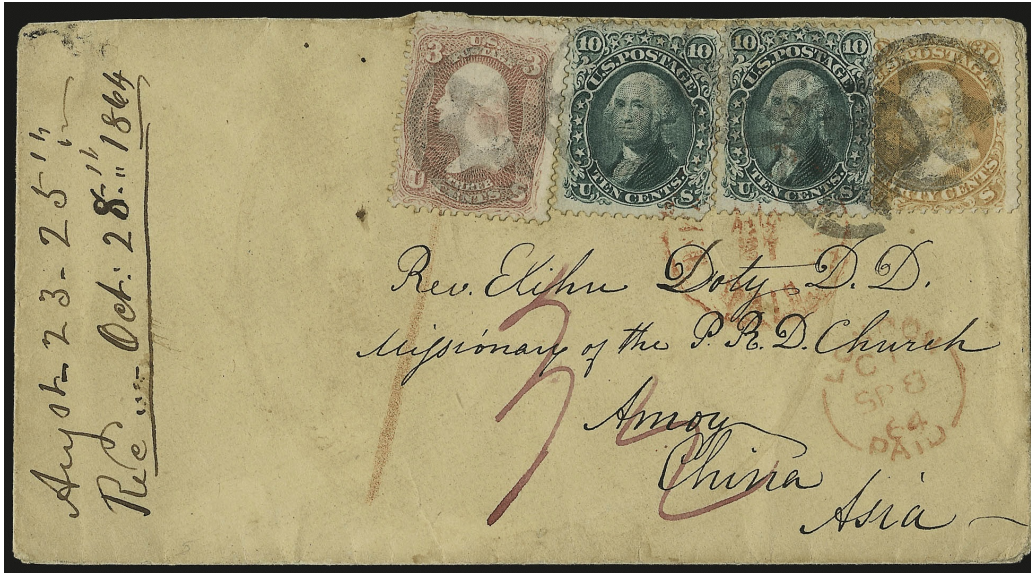 Augst 23-25"
Rec Oct: 28" 1864
3 U.S. POSTAGE 3
U THREE CENTS S
10 10
U.S. POSTAGE
U TEN CENTS. S
10 10
U.S. POSTAGE
U TEN CENTS. S
U.S. POSTAGE 30
CENTS S
Rev. Elihu Doty D.D.
Missionary of the P. R. D. Church
Amoy
China
Asia
PAID
SP 8
64
PAID